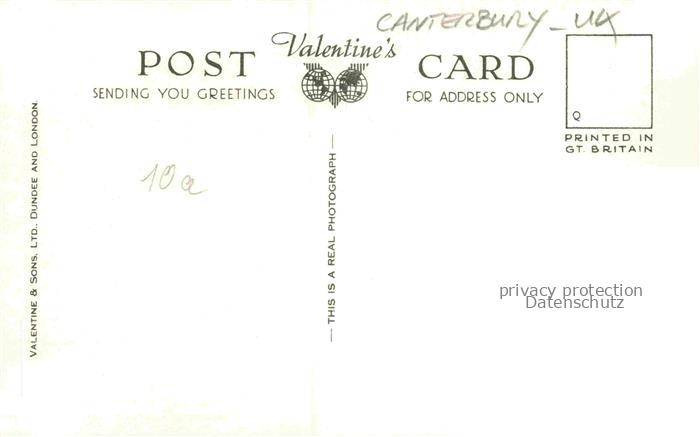 CANTERBURY - UK
Valentine's
POST CARD
SENDING YOU GREETINGS
FOR ADDRESS ONLY
Q
PRINTED IN
GT. BRITAIN
VALENTINE & SONS, LTD., DUNDEE AND LONDON.
10a
— THIS IS A REAL PHOTOGRAPH —
privacy protection
Datenschutz